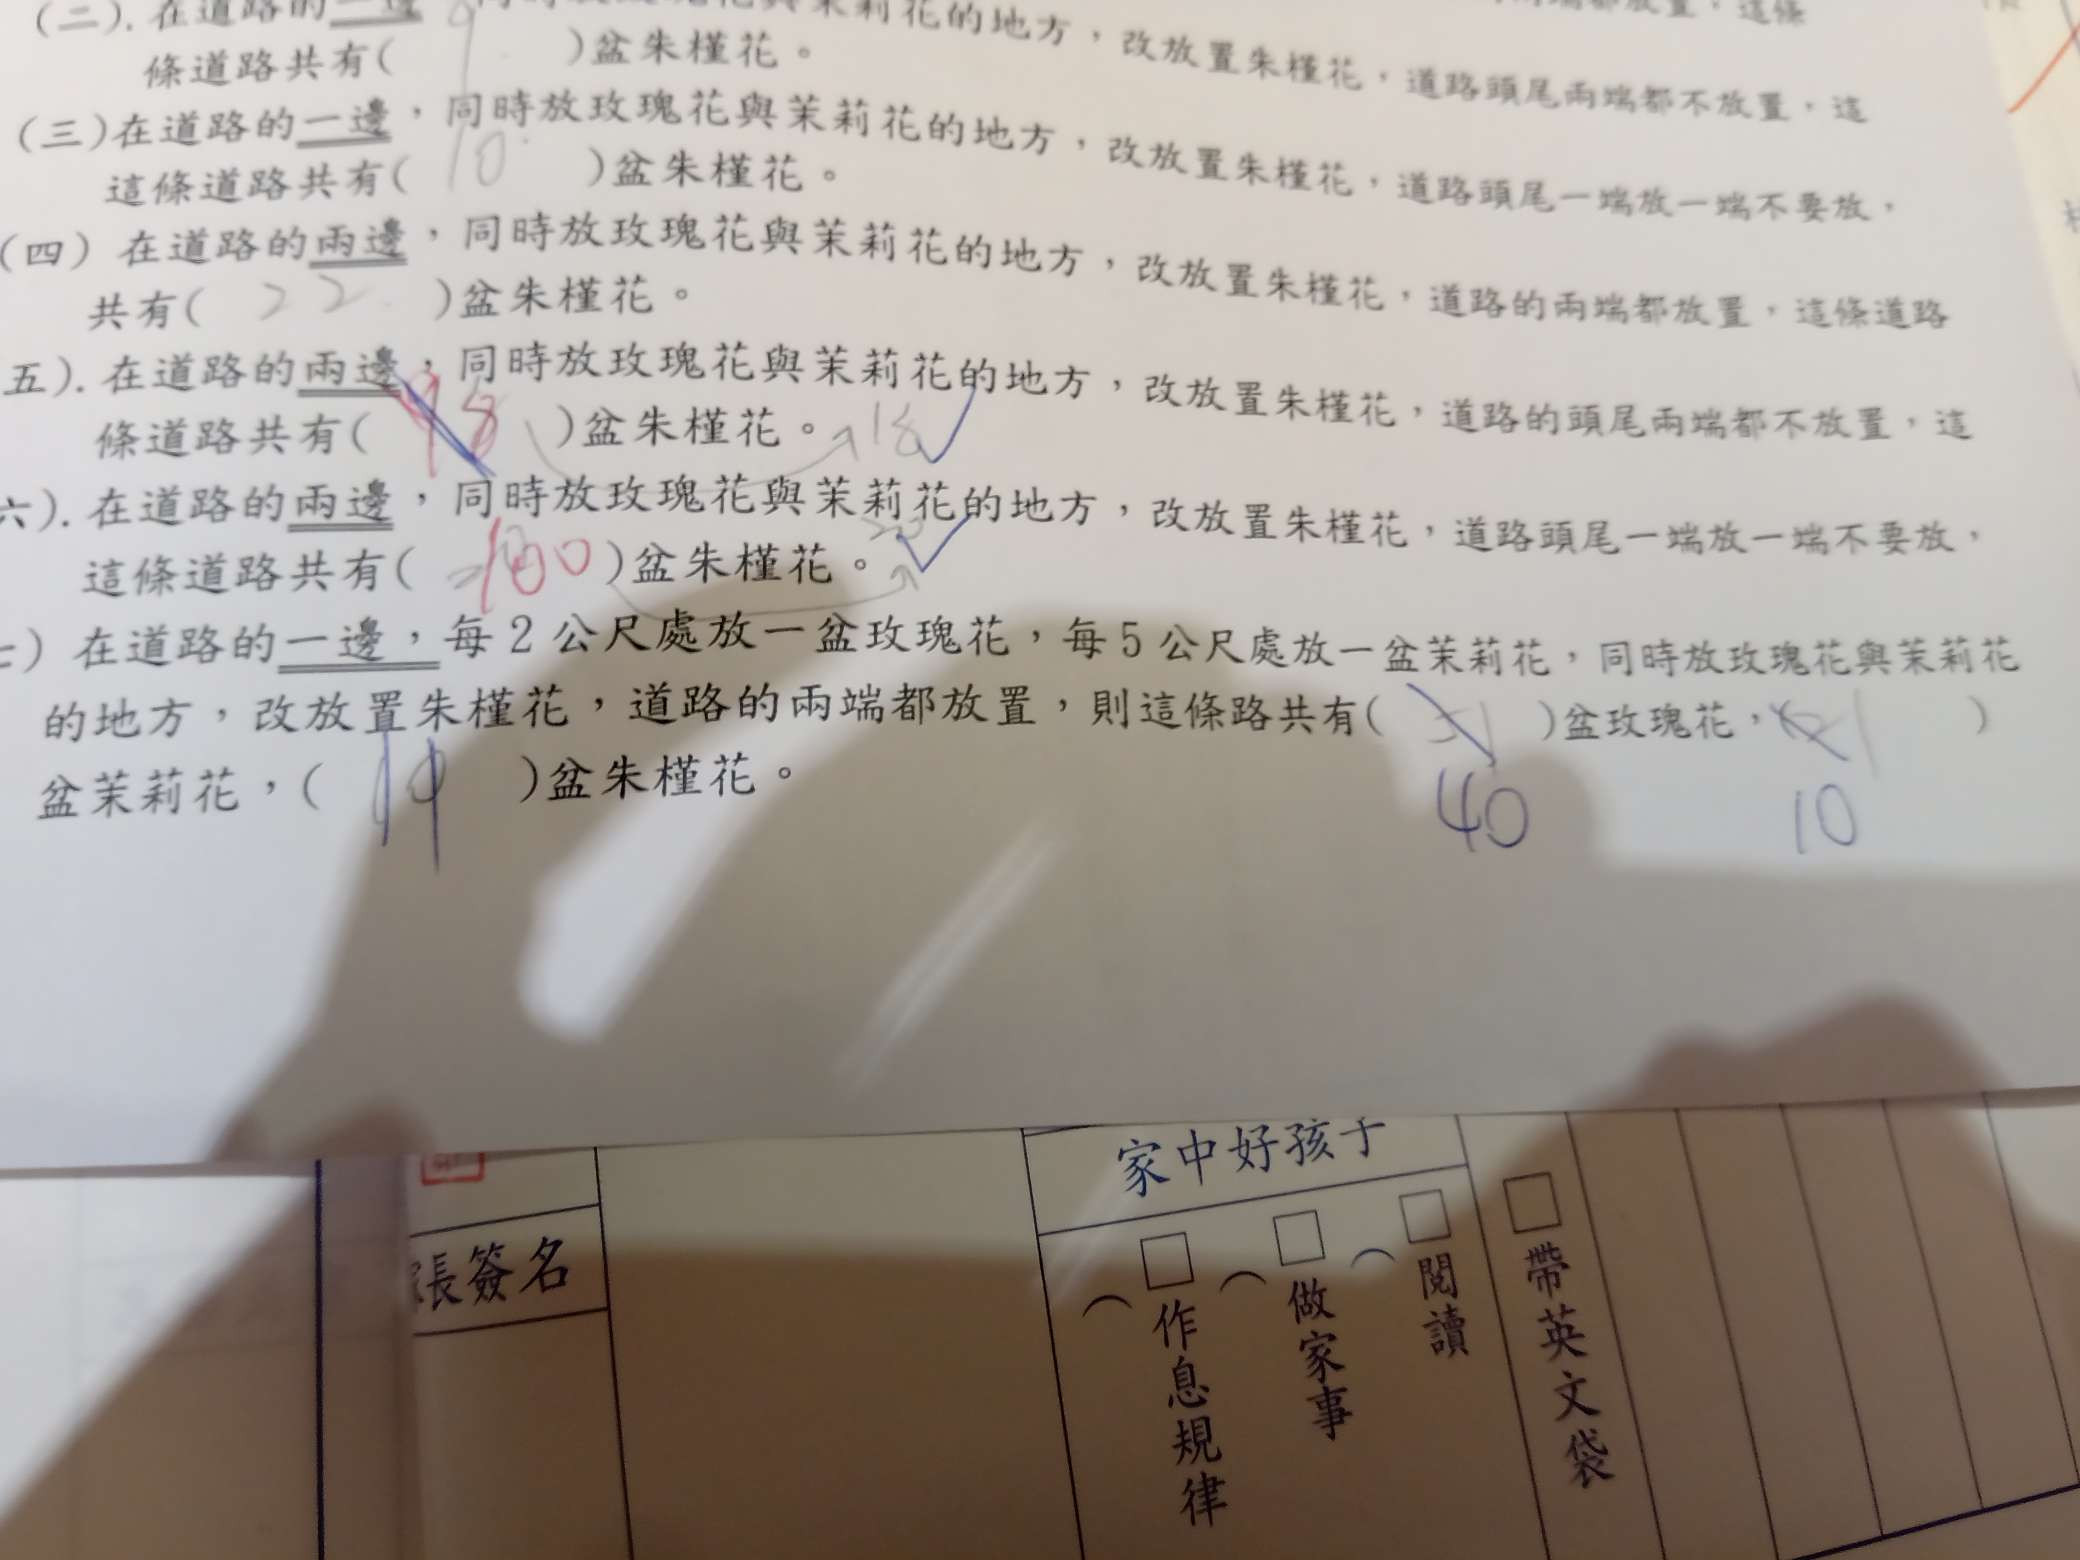 (二). 在道路的一邊，同時放玫瑰花與茉莉花的地方，改放置朱槿花，道路頭尾兩端都不放置，這
條道路共有( 9 )盆朱槿花。
(三)在道路的一邊，同時放玫瑰花與茉莉花的地方，改放置朱槿花，道路頭尾一端放一端不要放，
這條道路共有( 10 )盆朱槿花。
(四) 在道路的兩邊，同時放玫瑰花與茉莉花的地方，改放置朱槿花，道路的兩端都放置，這條道路
共有( 22 )盆朱槿花。
五). 在道路的兩邊，同時放玫瑰花與茉莉花的地方，改放置朱槿花，道路的頭尾兩端都不放置，這
條道路共有( 98 )盆朱槿花。 18
六). 在道路的兩邊，同時放玫瑰花與茉莉花的地方，改放置朱槿花，道路頭尾一端放一端不要放，
這條道路共有( 100 )盆朱槿花。 20
) 在道路的一邊，每2公尺處放一盆玫瑰花，每5公尺處放一盆茉莉花，同時放玫瑰花與茉莉花
的地方，改放置朱槿花，道路的兩端都放置，則這條路共有( 51 )盆玫瑰花，( 21 )
40 10
盆茉莉花，( 11 )盆朱槿花。
家中好孩子
長簽名
帶英文袋
閱讀
做家事
作息規律